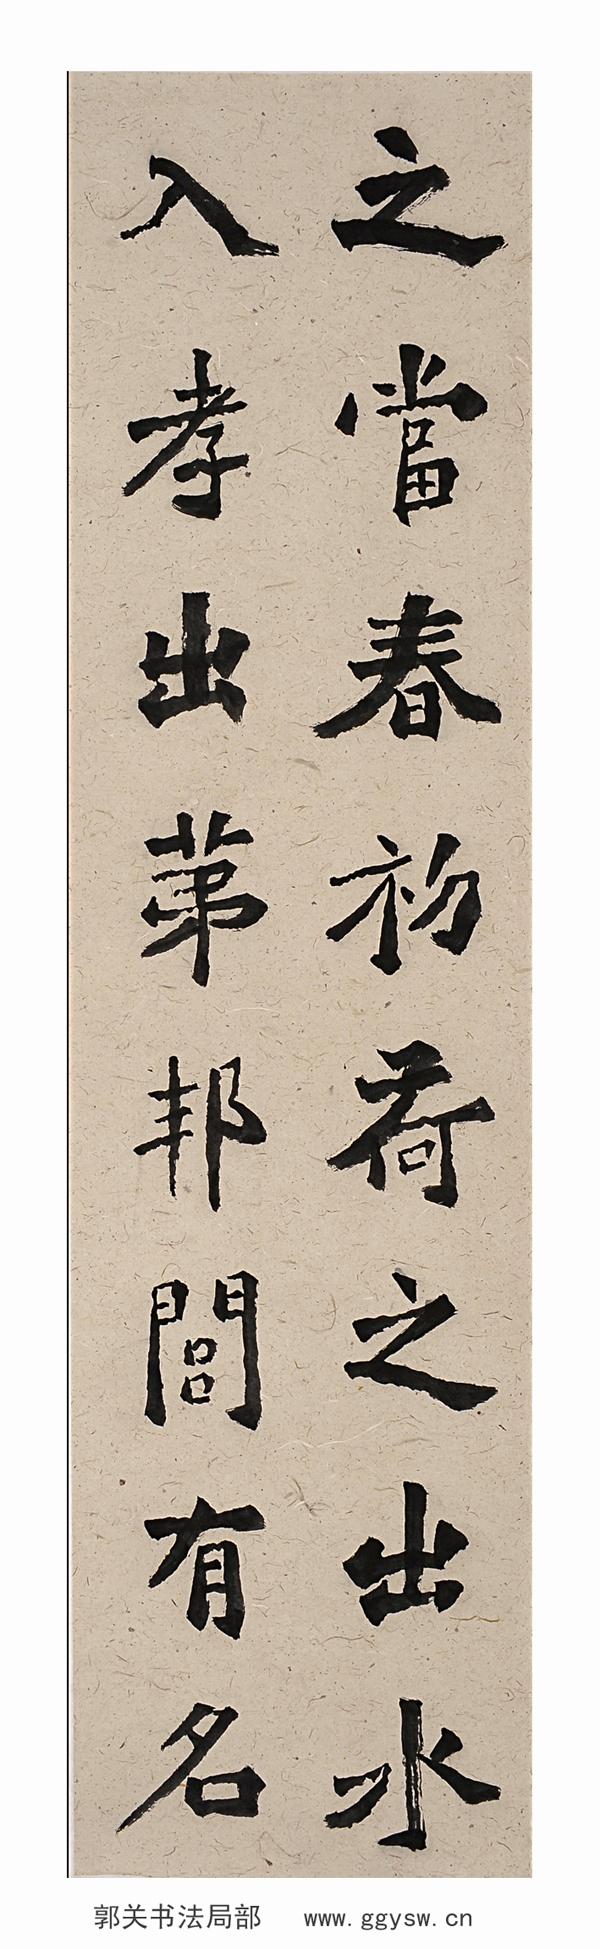 之當春初荷之出水
入孝出苐邦閭有名
郭关书法局部 www.ggysw.cn